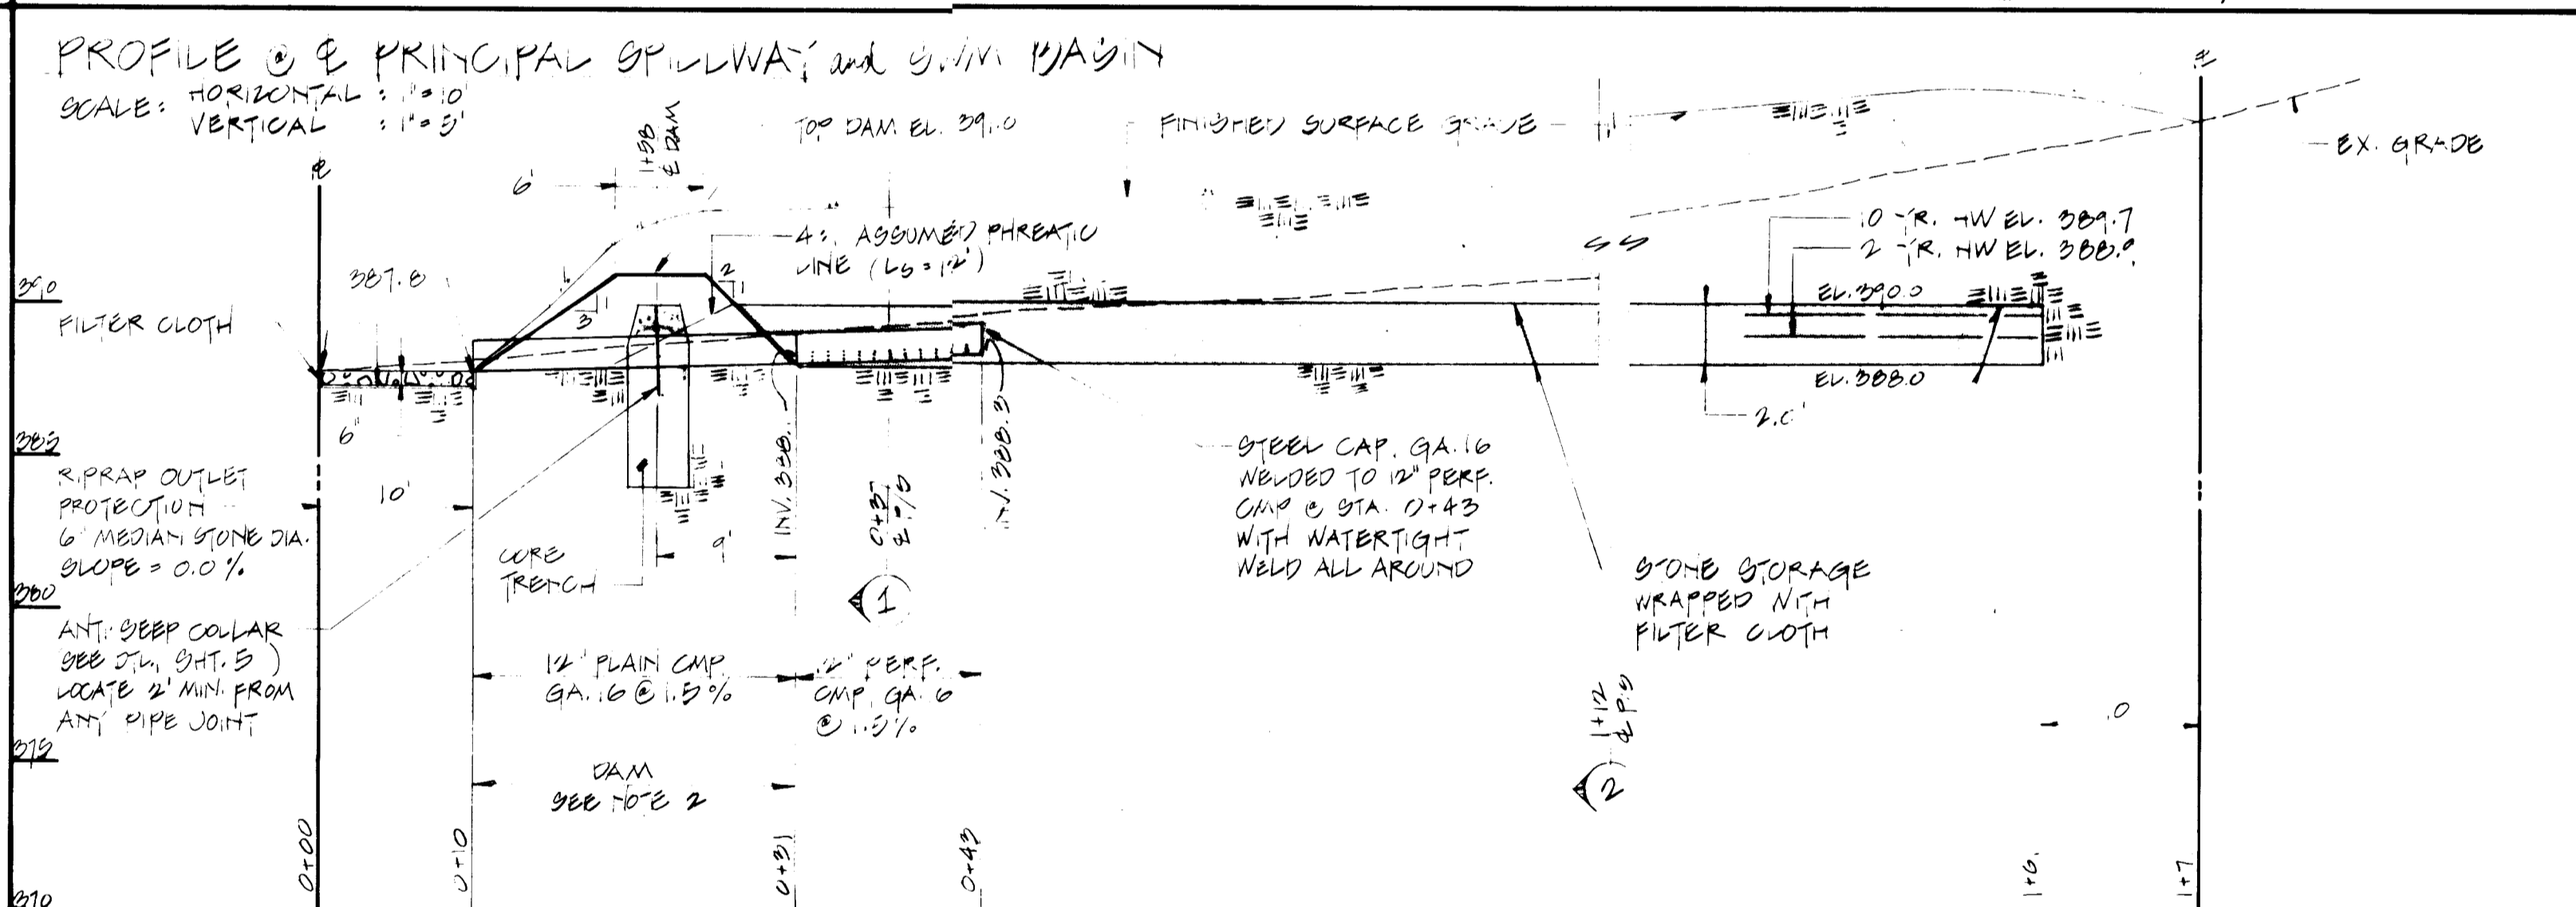 PROFILE @ ℄ PRINCIPAL SPILLWAY and SWM BASIN
SCALE: HORIZONTAL : 1"=10'
VERTICAL : 1"=5'
1+58
℄ DAM
TOP DAM EL. 391.0
FINISHED SURFACE GRADE
EX. GRADE
6'
4:1 ASSUMED PHREATIC
LINE (LS=12')
10 YR. HW EL. 389.7
2 YR. HW EL. 388.9
390
387.8
FILTER CLOTH
3
1
2
1
EL. 390.0
EL. 388.0
2.0'
385
6"
RIPRAP OUTLET
PROTECTION
6" MEDIAN STONE DIA.
SLOPE = 0.0%
10'
CORE
TRENCH
9'
INV. 388.
0+37
INV. 388.3
STEEL CAP, GA. 16
WELDED TO 12" PERF.
CMP @ STA. 0+43
WITH WATERTIGHT
WELD ALL AROUND
STONE STORAGE
WRAPPED WITH
FILTER CLOTH
380
1
ANTI-SEEP COLLAR
SEE DTL., SHT. 5)
LOCATE 2' MIN. FROM
ANY PIPE JOINT
12" PLAIN CMP
GA. 16 @ 1.5%
12" PERF.
CMP, GA. 16
@ 1.5%
1+12
℄ P.S
2
375
DAM
SEE NOTE 2
0+00
0+10
0+31
0+43
1+6
1+7
370